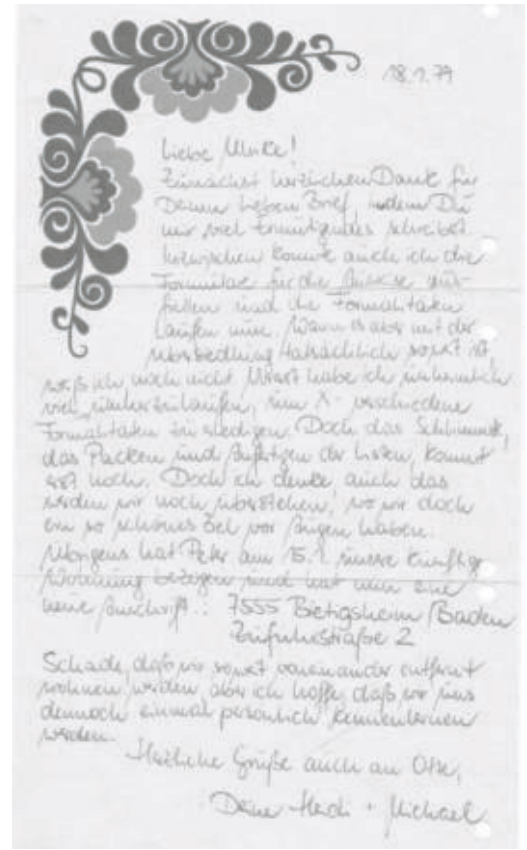 18.1.79
Liebe Ulrike!
Zunächst herzlichen Dank für
Deinen lieben Brief, in dem Du
mir viel Ermutigendes schreibst.
Inzwischen konnte auch ich die
Formulare für die Ausreise aus-
füllen und die Formalitäten
laufen nun. Wann es aber mit der
Übersiedlung tatsächlich soweit ist,
weiß ich noch nicht. Vorerst habe ich
viel um X- verschiedene
Formalitäten zu erledigen. Doch das Schlimmste,
das Packen und Anfertigen der Listen, kommt
erst noch. Doch ich denke auch das
werden wir noch überstehen, wo wir doch
ein so schönes Ziel vor Augen haben.
Übrigens hat Peter am 15.1. unsere künftige
Wohnung bezogen und hat nun eine
neue Anschrift.: 7555 Bietigheim/Baden
Zufuhrstraße 2
Schade, daß wir soweit voneinander entfernt
wohnen werden aber ich hoffe, daß wir uns
dennoch einmal persönlich kennenlernen
werden.
Herzliche Grüße auch an
Deine Heidi + Michael